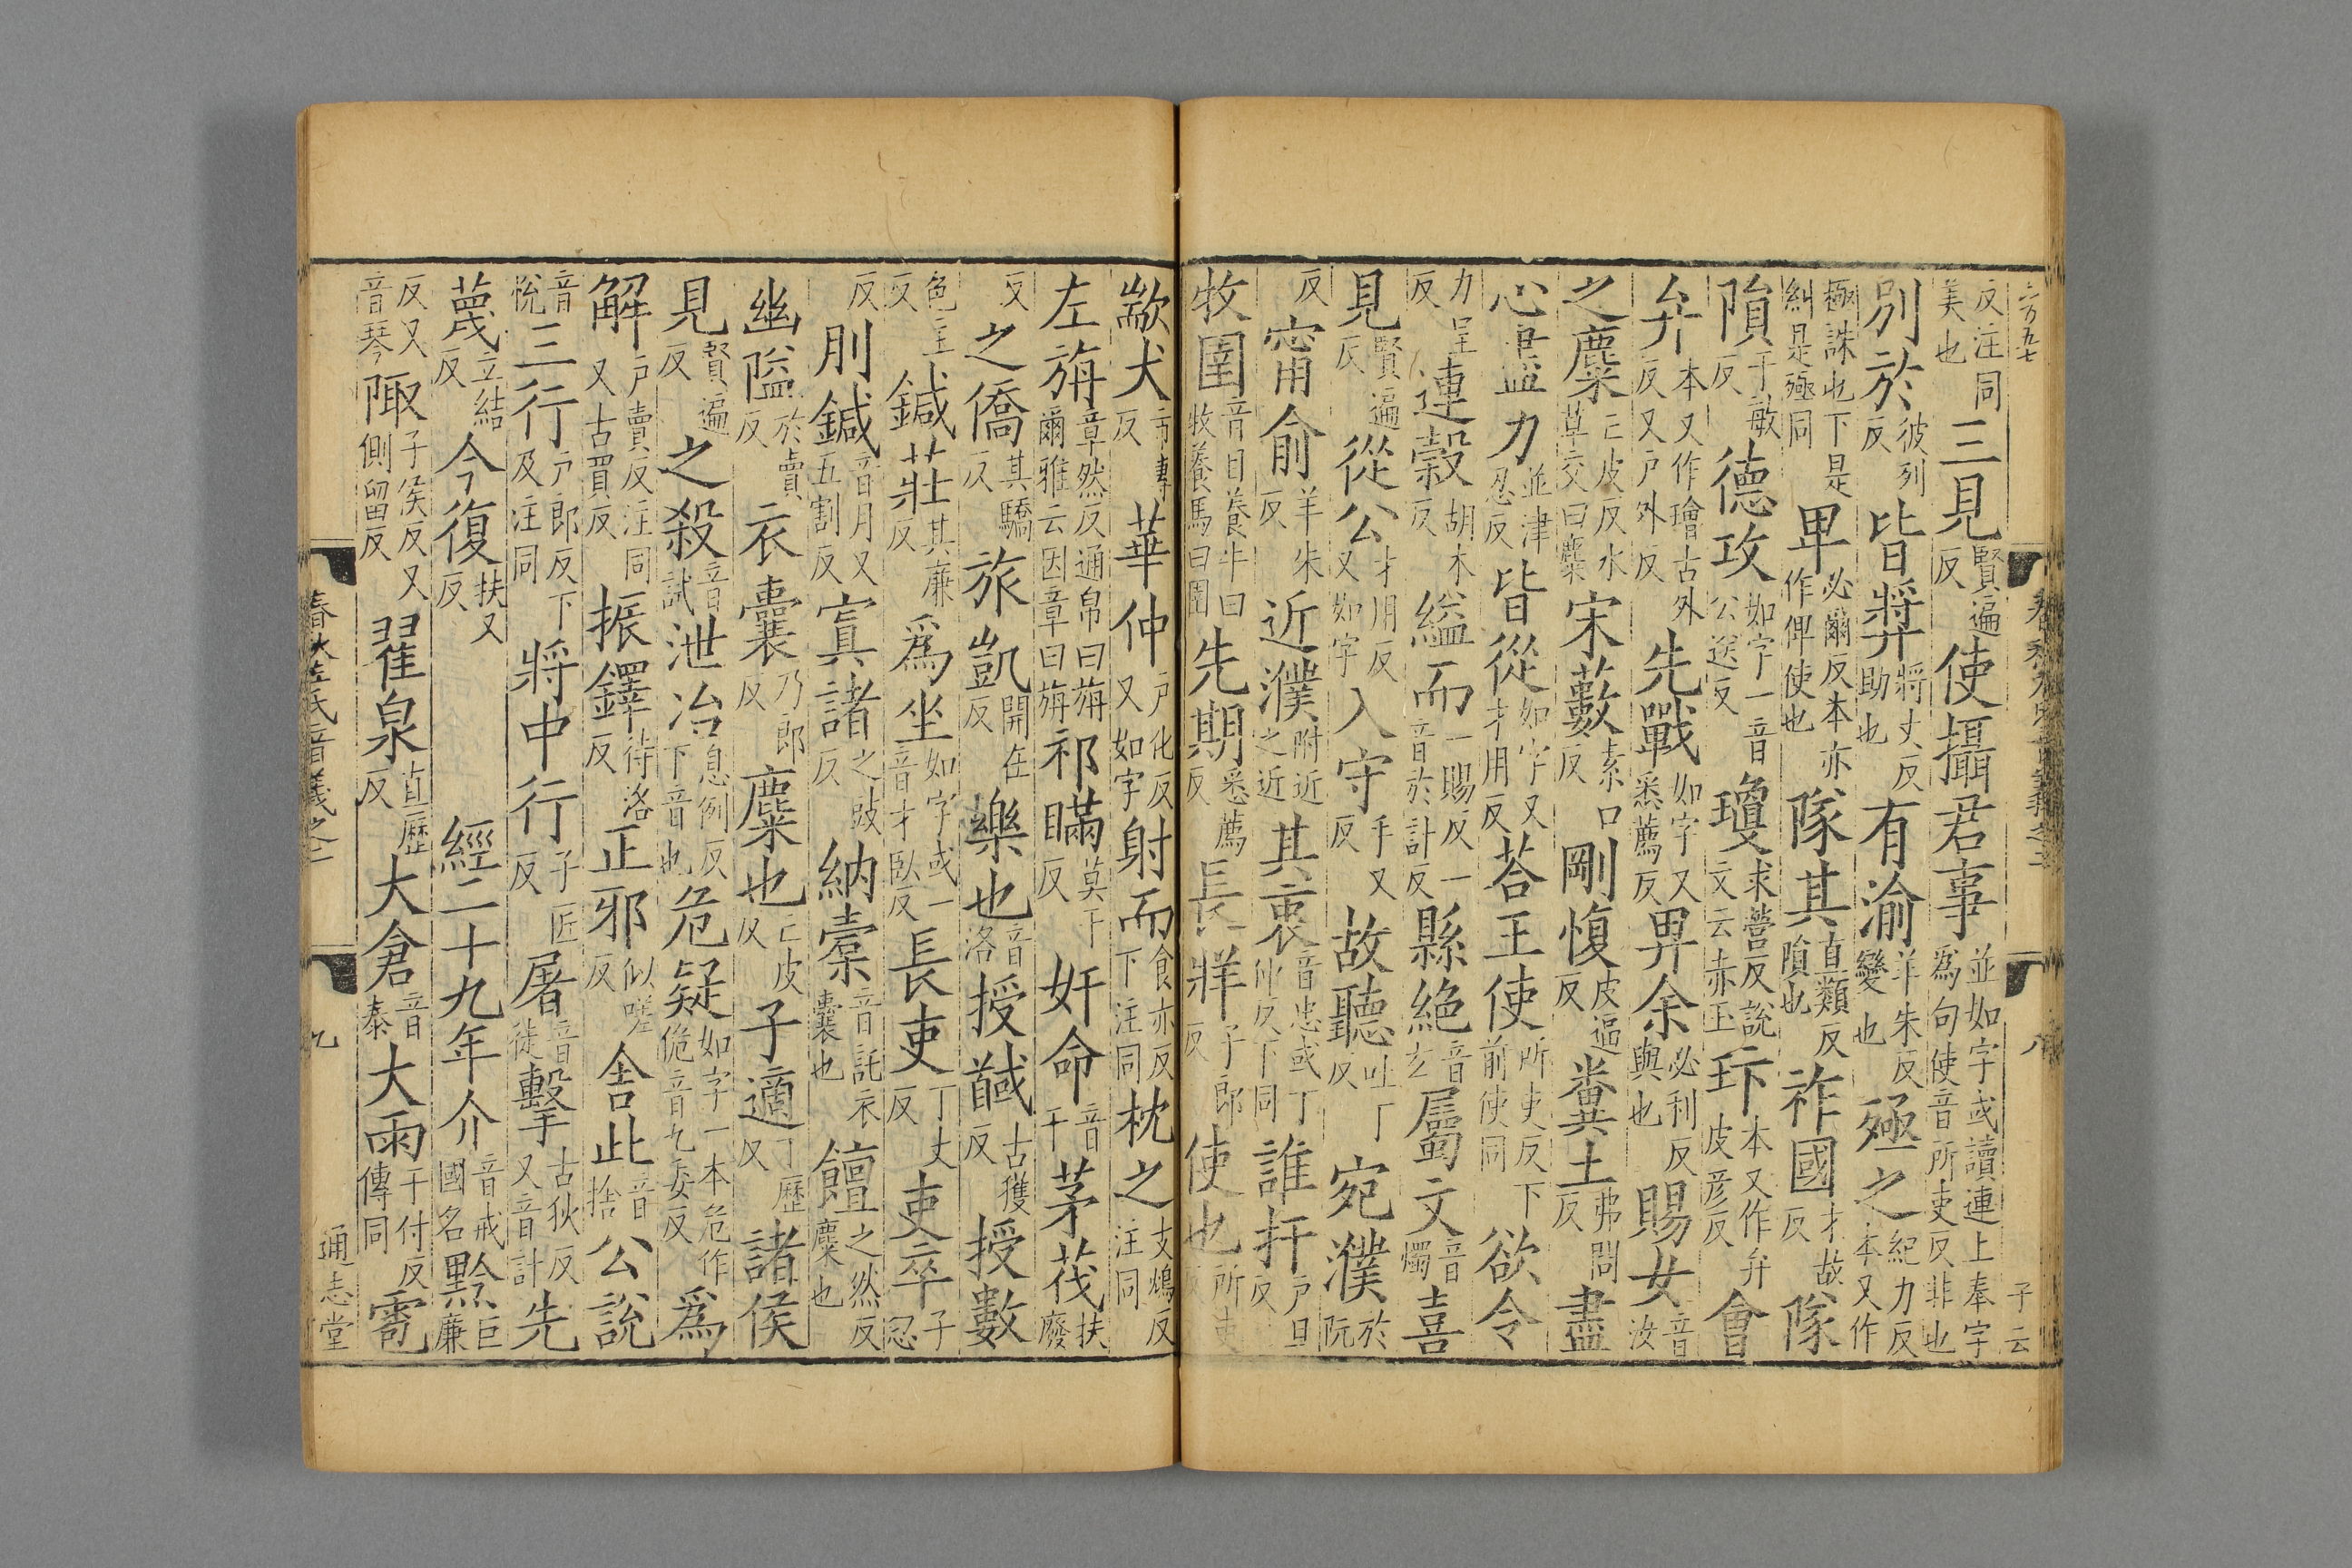 反注同美也三見賢遍反使攝君事並如字或讀連上奉字爲句使音所吏反非也
別於彼列反皆奬將丈反助也有渝羊朱反變也殛之紀力反本又作
極誅也下是糾是殛同畀必爾反本亦作俾使也隊其直類反隕也祚國才故反隊
隕于敏反德攻如字一音公送反瓊求營反說文云赤玉玣本又作弁皮彦反會
弁本又作璯古外反又戶外反先戰如字又悉薦反畀余必利反與也賜女音汝
之麋亡皮反水草交曰麋宋藪素口反剛愎皮逼反糞土弗問反盡
心盡力並津忍反皆從如字又才用反荅王使所吏反下前使同欲令
力呈反連穀胡木反縊而一賜反一音於計反縣絕音玄屬文音燭喜
見賢遍反從公才用反又如字入守手又反故聽吐丁反宛濮於阮
反甯俞羊朱反近濮附近之近其衷音忠或丁仲反下同誰扞戶旦反
牧圉音目養牛曰牧養馬曰圉先期悉薦反長牂子郎反使也所吏反
歂犬市專反華仲戶化反又如字射而食亦反下注同枕之支鴆反注同
左旃章然反通帛曰旃爾雅云因章曰旃祁瞞莫干反奸命音干茅茷扶廢
反之僑其驕反旅凱開在反樂也音洛授馘古獲反授數
色主反鍼莊其廉反爲坐如字或一音才臥反長吏丁丈反吏卒子忽
反刖鍼音月又五割反寘諸之豉反納橐音託衣囊也饘之然反糜也
幽隘於賣反衣囊乃郎反麋也亡皮反子適丁歷反諸侯
見賢遍反之殺音試泄冶息例反下音也危疑如字一本危作佹音九委反爲
解戶賣反注同又古買反振鐸待洛反正邪似嗟反舍此音捨公說
音悅三行戶郎反下及注同將中行子匠反屠音徒擊古狄反又音計先
蔑立結反今復扶又反經二十九年介音戒國名黔巨廉
反又音琴陬子侯反又側留反翟泉直歷反大倉音泰大雨于付反傳同雹
春秋左氏音義之二
九
通志堂